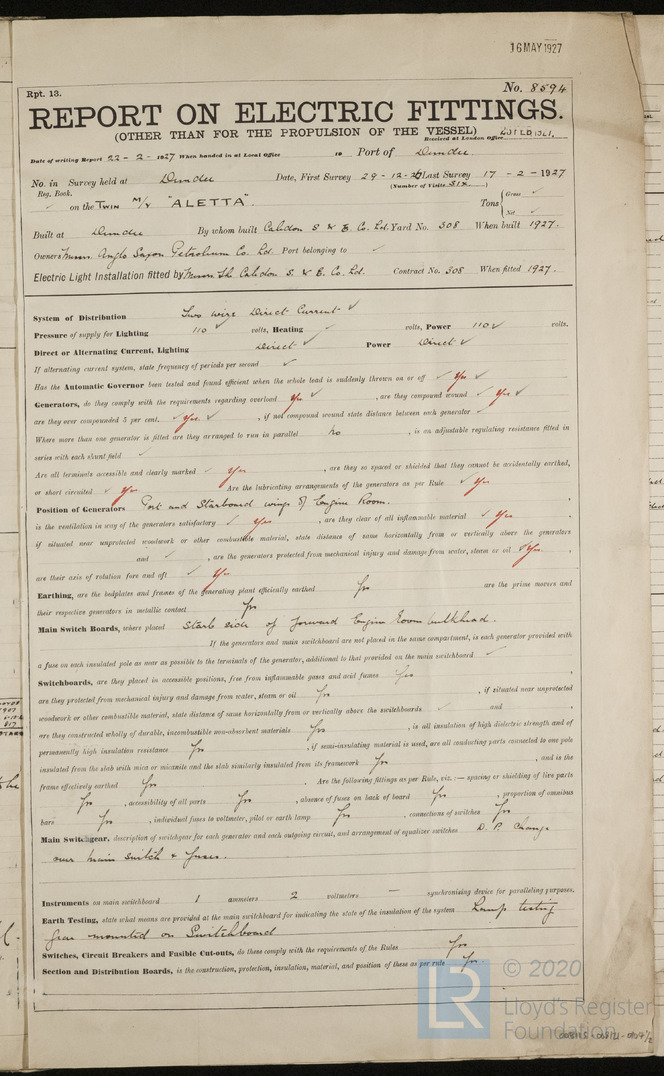 16 MAY 1927
Rpt. 13. No. 8594
REPORT ON ELECTRIC FITTINGS.
(OTHER THAN FOR THE PROPULSION OF THE VESSEL)
Received at London Office
Date of writing Report 22 - 2 - 1927 When handed in at Local Office 19 Port of Dundee.
No. in Survey held at Dundee Date, First Survey 29 - 12 - 26 Last Survey 17 - 2 - 1927
Reg. Book. (Number of Visits Six)
✓ on the Twin M/V "ALETTA". Tons { Gross ✓
Net ✓
Built at Dundee By whom built Caledon S & E. Co. Ld. Yard No. 308 When built 1927.
Owners Messrs. Anglo Saxon Petroleum Co. Ld. Port belonging to ✓
Electric Light Installation fitted by Messrs The Caledon S. & E. Co. Ld. Contract No. 308 When fitted 1927.
System of Distribution Two wire Direct Current ✓
Pressure of supply for Lighting 110 ✓ volts, Heating ✓ volts, Power 110 ✓ volts.
Direct or Alternating Current, Lighting Direct ✓ Power Direct ✓
If alternating current system, state frequency of periods per second ✓
Has the Automatic Governor been tested and found efficient when the whole load is suddenly thrown on or off ✓ Yes ✓
Generators, do they comply with the requirements regarding overload Yes ✓ , are they compound wound ✓ Yes ✓
are they over compounded 5 per cent. ✓ Yes ✓ , if not compound wound state distance between each generator ✓
Where more than one generator is fitted are they arranged to run in parallel no , is an adjustable regulating resistance fitted in
series with each shunt field ✓
Are all terminals accessible and clearly marked ✓ Yes , are they so spaced or shielded that they cannot be accidentally earthed,
or short circuited ✓ Yes Are the lubricating arrangements of the generators as per Rule ✓ Yes
Position of Generators Port and Starboard wings of Engine Room.
is the ventilation in way of the generators satisfactory ✓ Yes , are they clear of all inflammable material ✓ Yes
if situated near unprotected woodwork or other combustible material, state distance of same horizontally from or vertically above the generators
and ✓ , are the generators protected from mechanical injury and damage from water, steam or oil ✓ Yes
are their axis of rotation fore and aft ✓ Yes
Earthing, are the bedplates and frames of the generating plant efficiently earthed Yes are the prime movers and
their respective generators in metallic contact Yes
Main Switch Boards, where placed Starb side of forward Engine Room bulkhead.
If the generators and main switchboard are not placed in the same compartment, is each generator provided with
a fuse on each insulated pole as near as possible to the terminals of the generator, additional to that provided on the main switchboard ✓
Switchboards, are they placed in accessible positions, free from inflammable gases and acid fumes Yes
are they protected from mechanical injury and damage from water, steam or oil Yes , if situated near unprotected
woodwork or other combustible material, state distance of same horizontally from or vertically above the switchboards ✓ and ✓
are they constructed wholly of durable, incombustible non-absorbent materials Yes , is all insulation of high dielectric strength and of
permanently high insulation resistance Yes , if semi-insulating material is used, are all conducting parts connected to one pole
insulated from the slab with mica or micanite and the slab similarly insulated from its framework Yes , and is the
frame effectively earthed Yes . Are the following fittings as per Rule, viz. :— spacing or shielding of live parts
Yes , accessibility of all parts Yes , absence of fuses on back of board Yes , proportion of omnibus
bars Yes , individual fuses to voltmeter, pilot or earth lamp Yes , connections of switches Yes
Main Switchgear, description of switchgear for each generator and each outgoing circuit, and arrangement of equalizer switches D. P. Change
over main switch & fuses.
Instruments on main switchboard 1 ammeters 2 voltmeters — synchronising device for paralleling purposes.
Earth Testing, state what means are provided at the main switchboard for indicating the state of the insulation of the system Lamp testing
gear mounted on Switchboard
Switches, Circuit Breakers and Fusible Cut-outs, do these comply with the requirements of the Rules Yes
Section and Distribution Boards, is the construction, protection, insulation, material, and position of these as per rule Yes.
LR © 2020
Lloyd's Register
Foundation